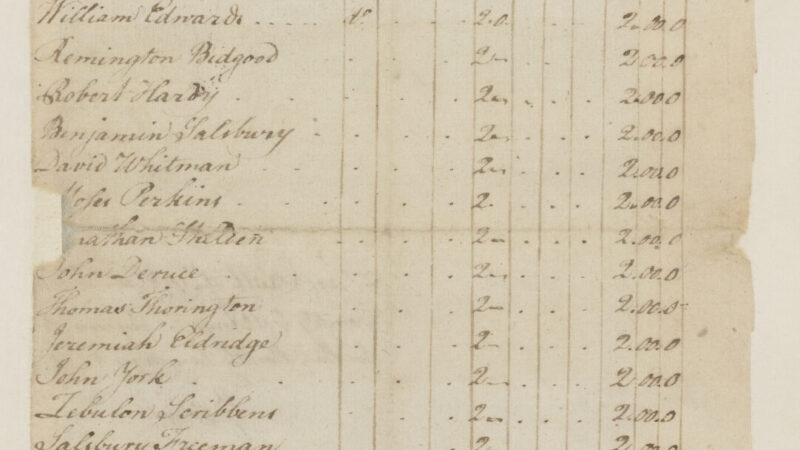 William Edwards . . . . . do . . 2.0. . . . 2.00.0
Remington Bidgood . . . . 2 . . . 2.00.0
Robert Hardy . . . . . 2 . . . 2.00.0
Benjamin Salsbury . . . . 2 . . . 2.00.0
David Whitman . . . . 2 . . . 2.00.0
Moses Perkins . . . . . 2. . . . 2.00.0
nathan Shelden . . . . 2 . . . 2.00.0
John Deruce . . . . . 2 . . . 2.00.0
Thomas Thorington . . . 2 . . . 2.00.0
Jeremiah Eldridge . . . 2 . . . 2.00.0
John York . . . . . 2 . . . 2.00.0
Zebulon Scribbens . . . 2 . . . 2.00.0
Salsbury Freeman . . . 2 . . . 2.00.0